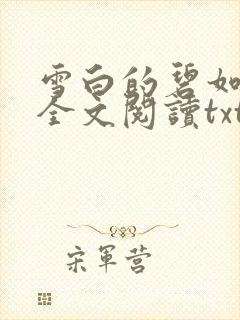 雪白的碧如
全文閱讀txt
宋軍营